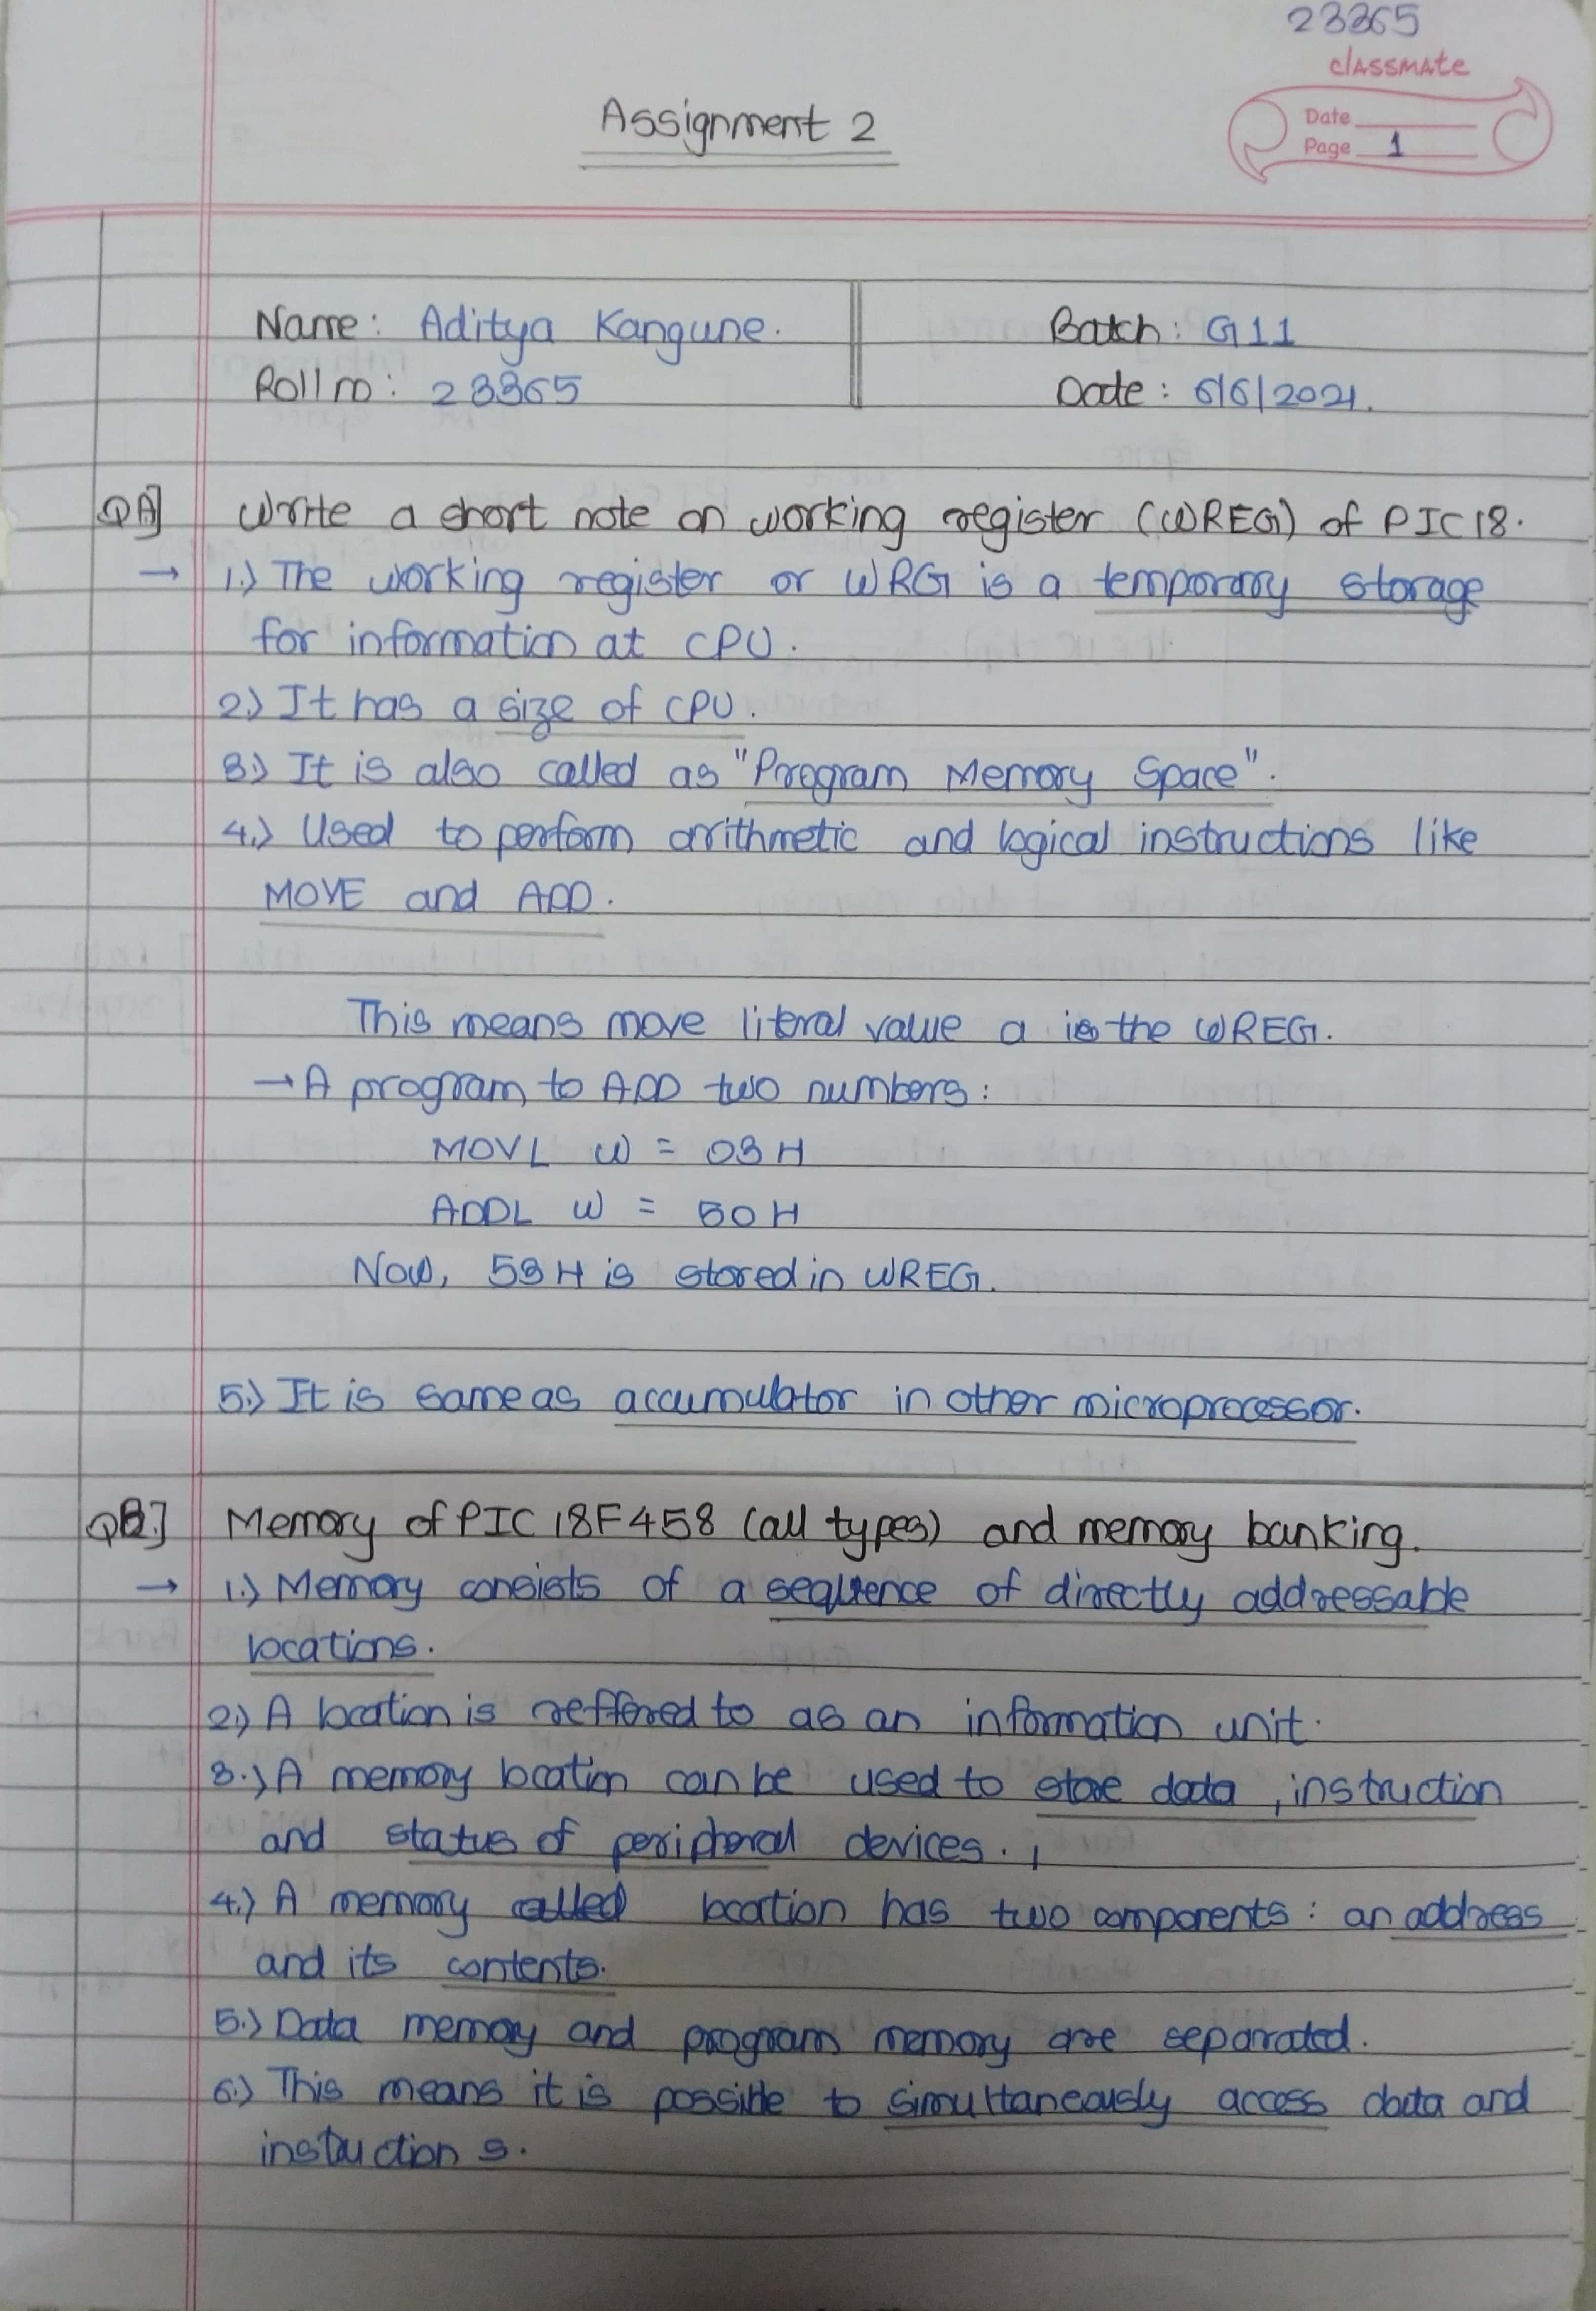 23365
classmate
Assignment 2
Date
Page 1
Name: Aditya Kangune.
Batch: G11
Roll no: 23365
Date: 6/6/2021.
QA] Write a short note on working register (WREG) of PIC18.
→ 1.) The working register or WRG is a temporary storage
for information at CPU.
2.) It has a size of CPU.
3.) It is also called as "Program Memory Space".
4.) Used to perform arithmetic and logical instructions like
MOVE and ADD.
This means move literal value a is the WREG.
→ A program to ADD two numbers:
MOVL W = 03H
ADDL W = 50H
Now, 53H is stored in WREG.
5.) It is same as accumulator in other microprocessor.
QB.] Memory of PIC 18F458 (all types) and memory banking.
→ 1.) Memory consists of a sequence of directly addressable
locations.
2.) A location is reffered to as an information unit.
3.) A memory location can be used to store data, instruction
and status of peripheral devices.
4.) A memory called location has two components: an address
and its contents.
5.) Data memory and program memory are separated.
6.) This means it is possible to simultaneously access data and
instructions.